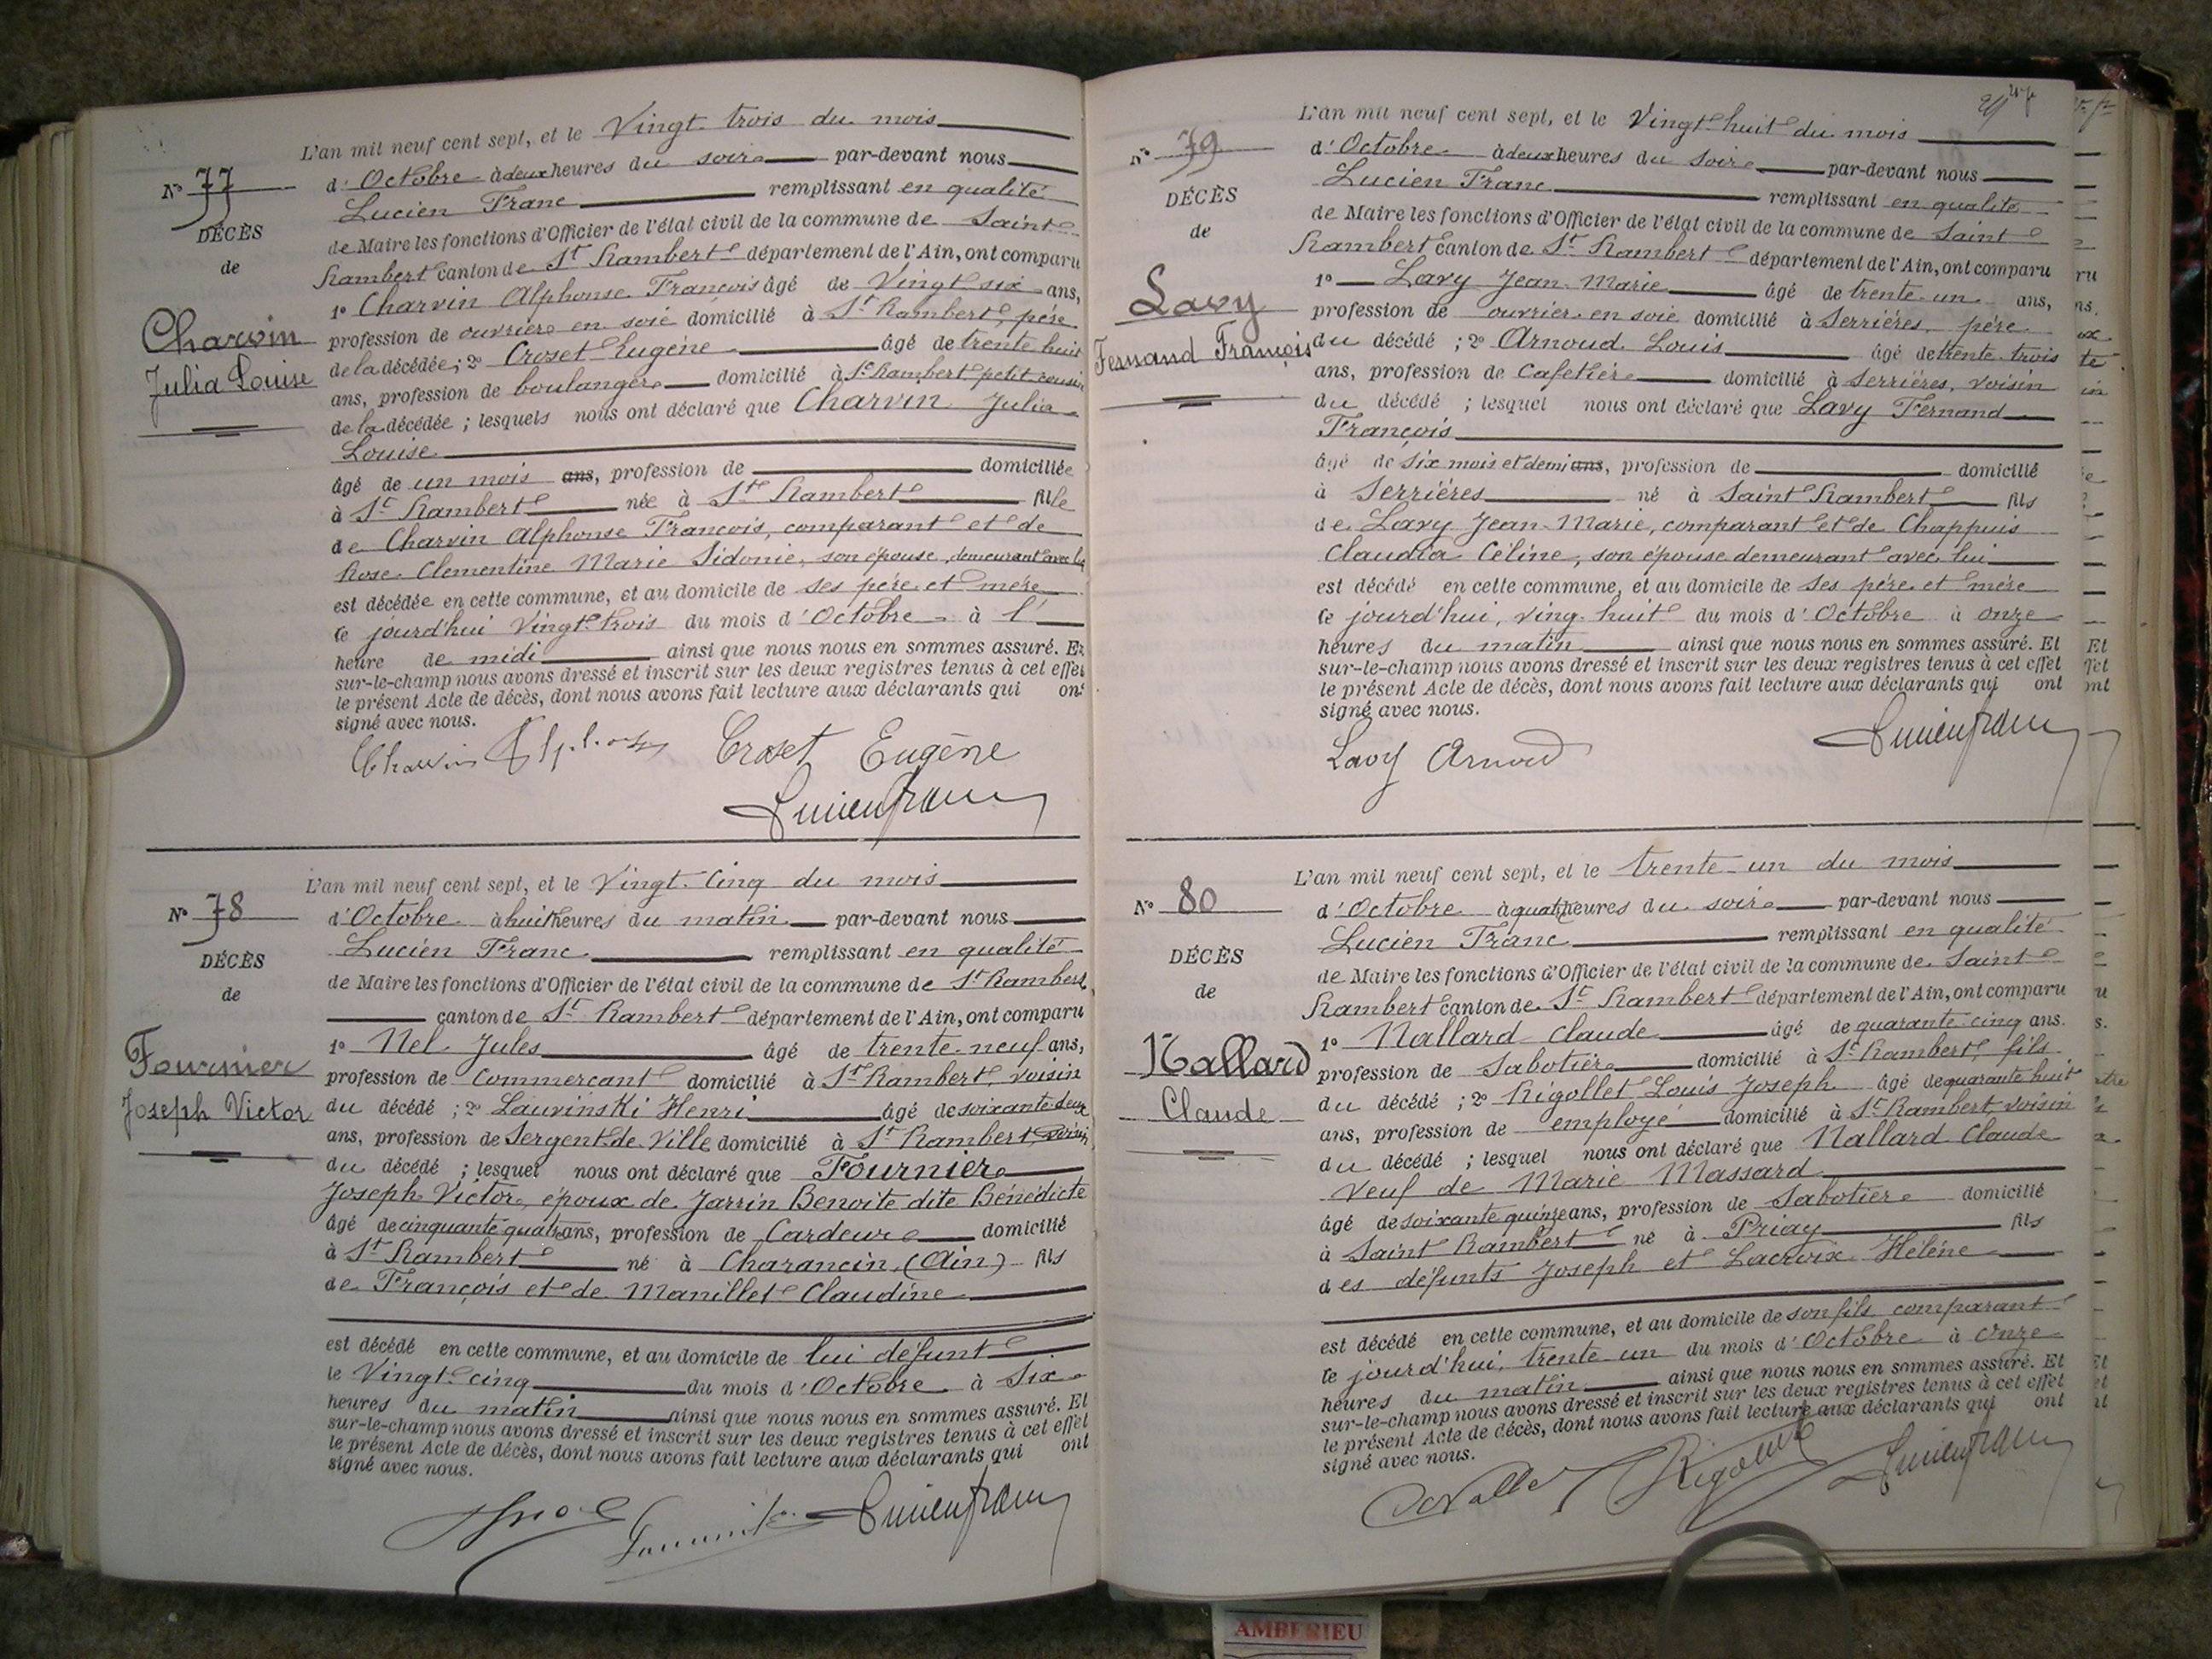 L'an mil neuf cent sept, et le Vingt trois du mois
N° 77
d'Octobre à deux heures du soir par-devant nous
Lucien Franc remplissant en qualité
DÉCÈS
de Maire les fonctions d'Officier de l'état civil de la commune de Saint
de
Rambert canton de St Rambert département de l'Ain, ont comparu
1° Charvin Alphonse François âgé de Vingt six ans,
Charvin
profession de ouvrier en soie domicilié à St Rambert, père
de la décédée ; 2° Croset Eugène âgé de trente huit
Julia Louise
ans, profession de boulanger domicilié à St Rambert petit cousin
de la décédée ; lesquels nous ont déclaré que Charvin Julia
Louise
âgé de un mois ans, profession de domiciliée
à St Rambert née à St Rambert fille
de Charvin Alphonse François, comparant et de
Rose Clementine Marie Sidonie, son épouse, demeurant avec lui
est décédée en cette commune, et au domicile de ses père et mère
le jourd'hui Vingt trois du mois d'Octobre à l'
heure de midi ainsi que nous nous en sommes assuré. Et
sur-le-champ nous avons dressé et inscrit sur les deux registres tenus à cet effet
le présent Acte de décès, dont nous avons fait lecture aux déclarants qui ont
signé avec nous.
Charvin Croset Eugène
Lucien Franc
L'an mil neuf cent sept, et le Vingt Cinq du mois
N° 78
d'Octobre à huit heures du matin par-devant nous
Lucien Franc remplissant en qualité
DÉCÈS
de Maire les fonctions d'Officier de l'état civil de la commune de St Rambert
de
canton de St Rambert département de l'Ain, ont comparu
1° Nel Jules âgé de trente neuf ans,
Fournier
profession de Commerçant domicilié à St Rambert, voisin
Joseph Victor
du décédé ; 2° Lauvinski Henri âgé de soixante deux
ans, profession de Sergent de Ville domicilié à St Rambert, voisin
du décédé ; lesquel nous ont déclaré que Fournier
Joseph Victor, époux de Jarrin Benoite dite Bénédicte
âgé de cinquante quatre ans, profession de Cardeur domicilié
à St Rambert né à Charancin (Ain) fils
de François et de Manillet Claudine
est décédé en cette commune, et au domicile de lui défunt
le Vingt cinq du mois d'Octobre à Six
heures du matin ainsi que nous nous en sommes assuré. Et
sur-le-champ nous avons dressé et inscrit sur les deux registres tenus à cet effet
le présent Acte de décès, dont nous avons fait lecture aux déclarants qui ont
signé avec nous.
Lucien Franc
L'an mil neuf cent sept, et le Vingt huit du mois
N° 79
d'Octobre à deux heures du soir par-devant nous
Lucien Franc remplissant en qualité
DÉCÈS
de Maire les fonctions d'Officier de l'état civil de la commune de Saint
de
Rambert canton de St Rambert département de l'Ain, ont comparu
1° Lavy Jean Marie âgé de trente un ans,
Lavy
profession de ouvrier en soie domicilié à Serrières, père
Fernand François
du décédé ; 2° Arnoud Louis âgé de trente trois
ans, profession de Cafetier domicilié à Serrières, voisin
du décédé ; lesquel nous ont déclaré que Lavy Fernand
François
âgé de six mois et demi ans, profession de domicilié
à Serrières né à Saint Rambert fils
de Lavy Jean Marie, comparant et de Chappuis
Claudia Céline, son épouse demeurant avec lui
est décédé en cette commune, et au domicile de ses père et mère
le jourd'hui, ving huit du mois d'Octobre à onze
heures du matin ainsi que nous nous en sommes assuré. Et
sur-le-champ nous avons dressé et inscrit sur les deux registres tenus à cet effet
le présent Acte de décès, dont nous avons fait lecture aux déclarants qui ont
signé avec nous.
Lavy Arnoud Lucien Franc
L'an mil neuf cent sept, et le trente un du mois
N° 80
d'Octobre à quatre heures du soir par-devant nous
Lucien Franc remplissant en qualité
DÉCÈS
de Maire les fonctions d'Officier de l'état civil de la commune de Saint
de
Rambert canton de St Rambert département de l'Ain, ont comparu
1° Nallard Claude âgé de quarante cinq ans.
Nallard
profession de Sabotier domicilié à St Rambert, fils
Claude
du décédé ; 2° Rigollet Louis Joseph âgé de quarante huit
ans, profession de employé domicilié à St Rambert, voisin
du décédé ; lesquel nous ont déclaré que Nallard Claude
veuf de Marie Massard
âgé de soixante quinze ans, profession de Sabotier domicilié
à Saint Rambert né à Priay fils
des défunts Joseph et Lacroix Hélène
est décédé en cette commune, et au domicile de son fils comparant
le jourd'hui, trente un du mois d'Octobre à Onze
heures du matin ainsi que nous nous en sommes assuré. Et
sur-le-champ nous avons dressé et inscrit sur les deux registres tenus à cet effet
le présent Acte de décès, dont nous avons fait lecture aux déclarants qui ont
signé avec nous.
Lucien Franc
AMBERIEU